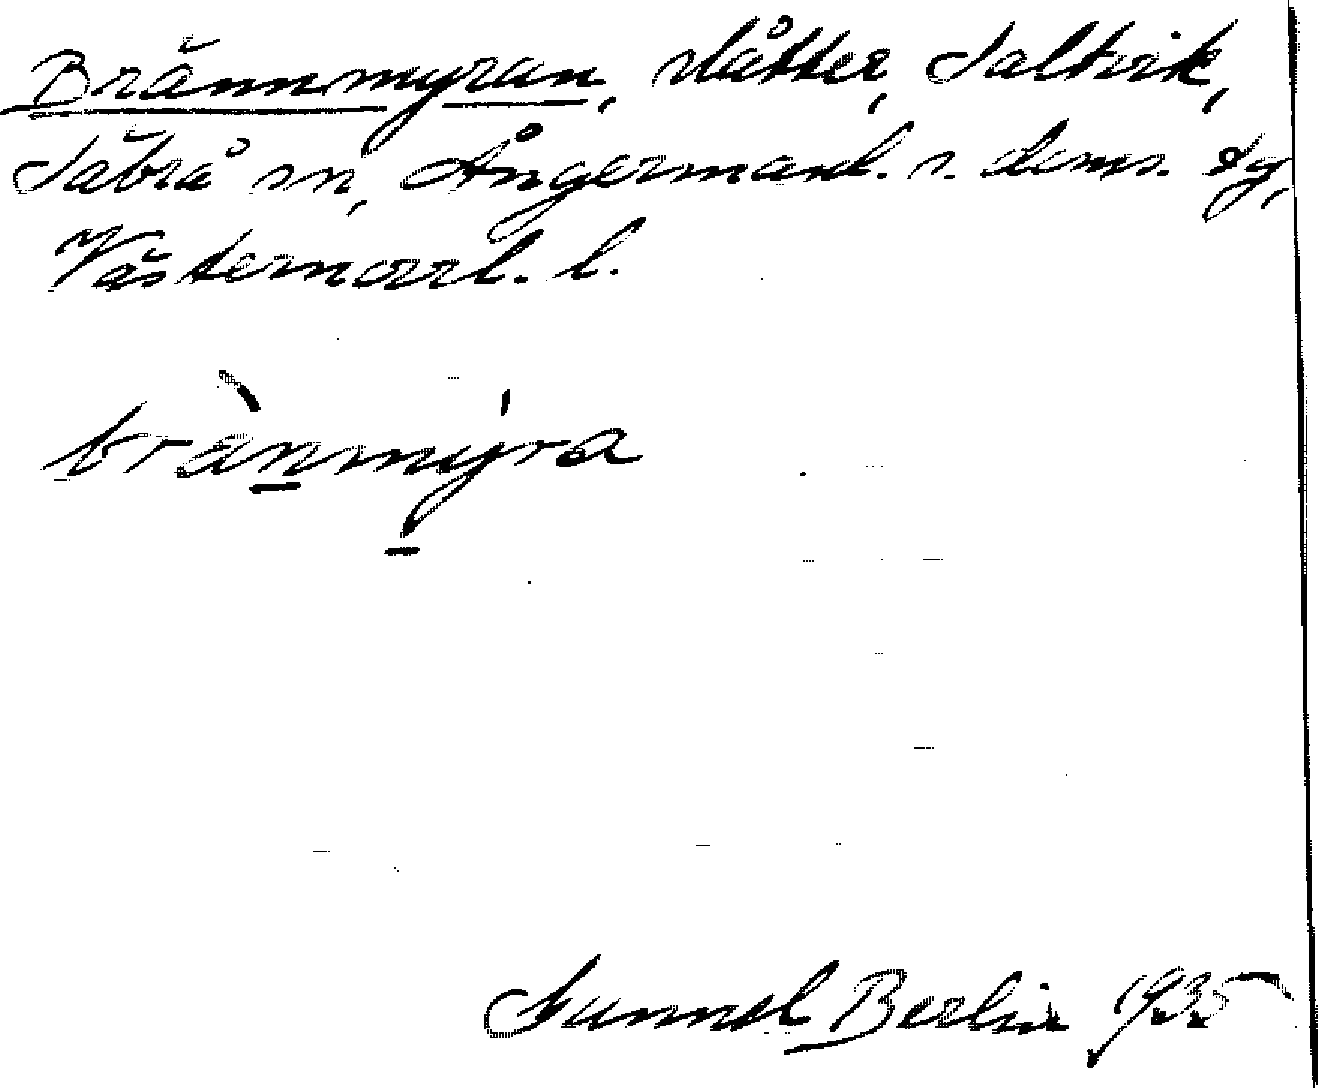 Brännmyran, slåtter, Saltvik,
Säbrå sn, Ångermanl. s. doms. tg,
Västernorrl. l.
brànmýra
Gunnel Berlin 1935